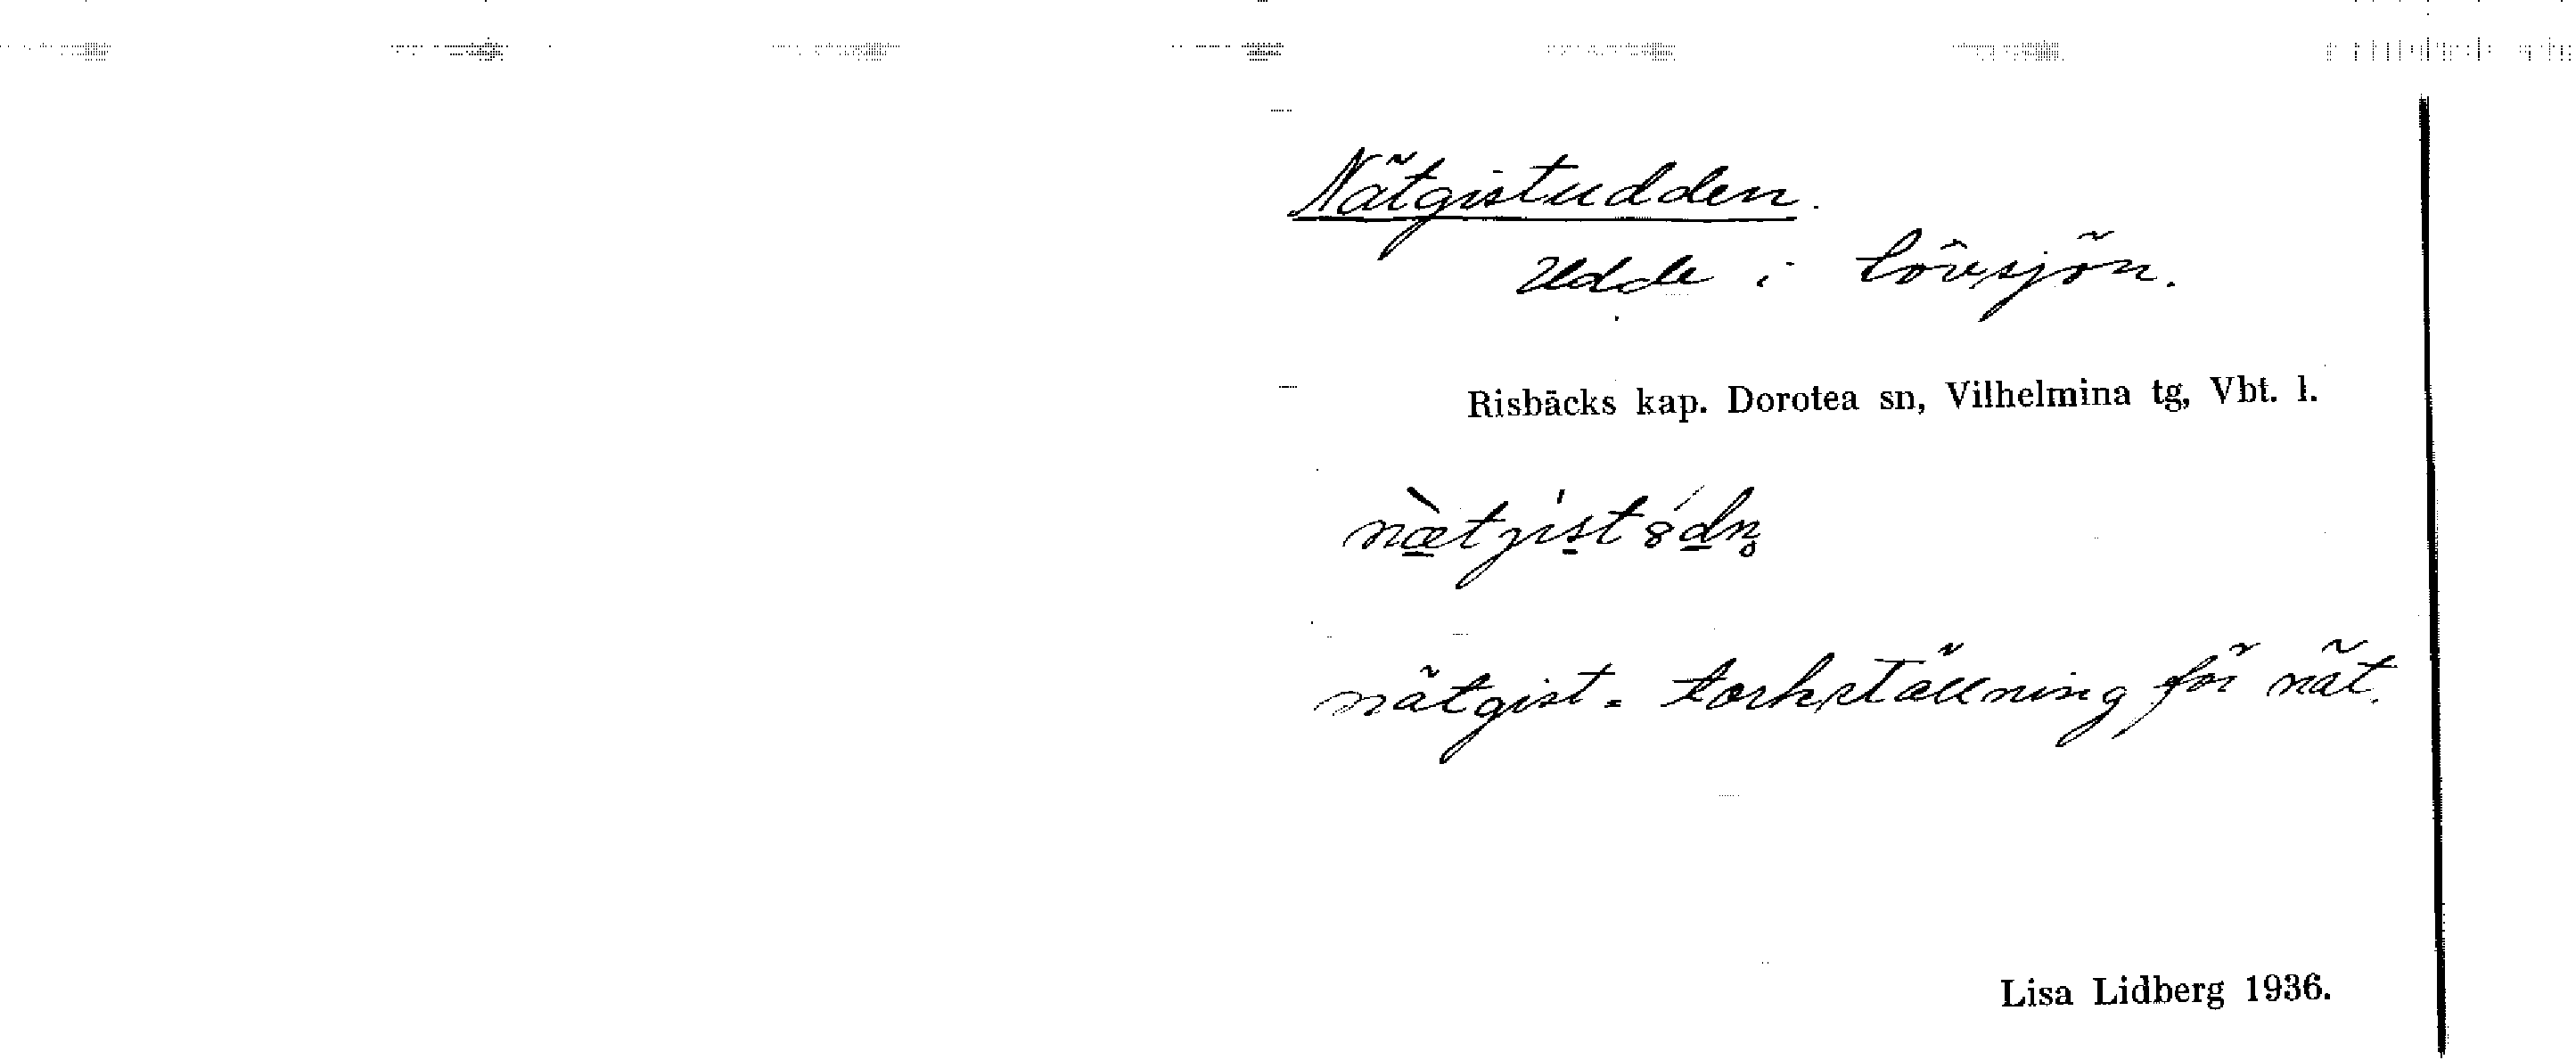 Nätgistudden.
Udde i Lövsjön.
Risbäcks kap. Dorotea sn, Vilhelmina tg, Vbt. l.
nätgist = torkställning för nät.
Lisa Lidberg 1936.